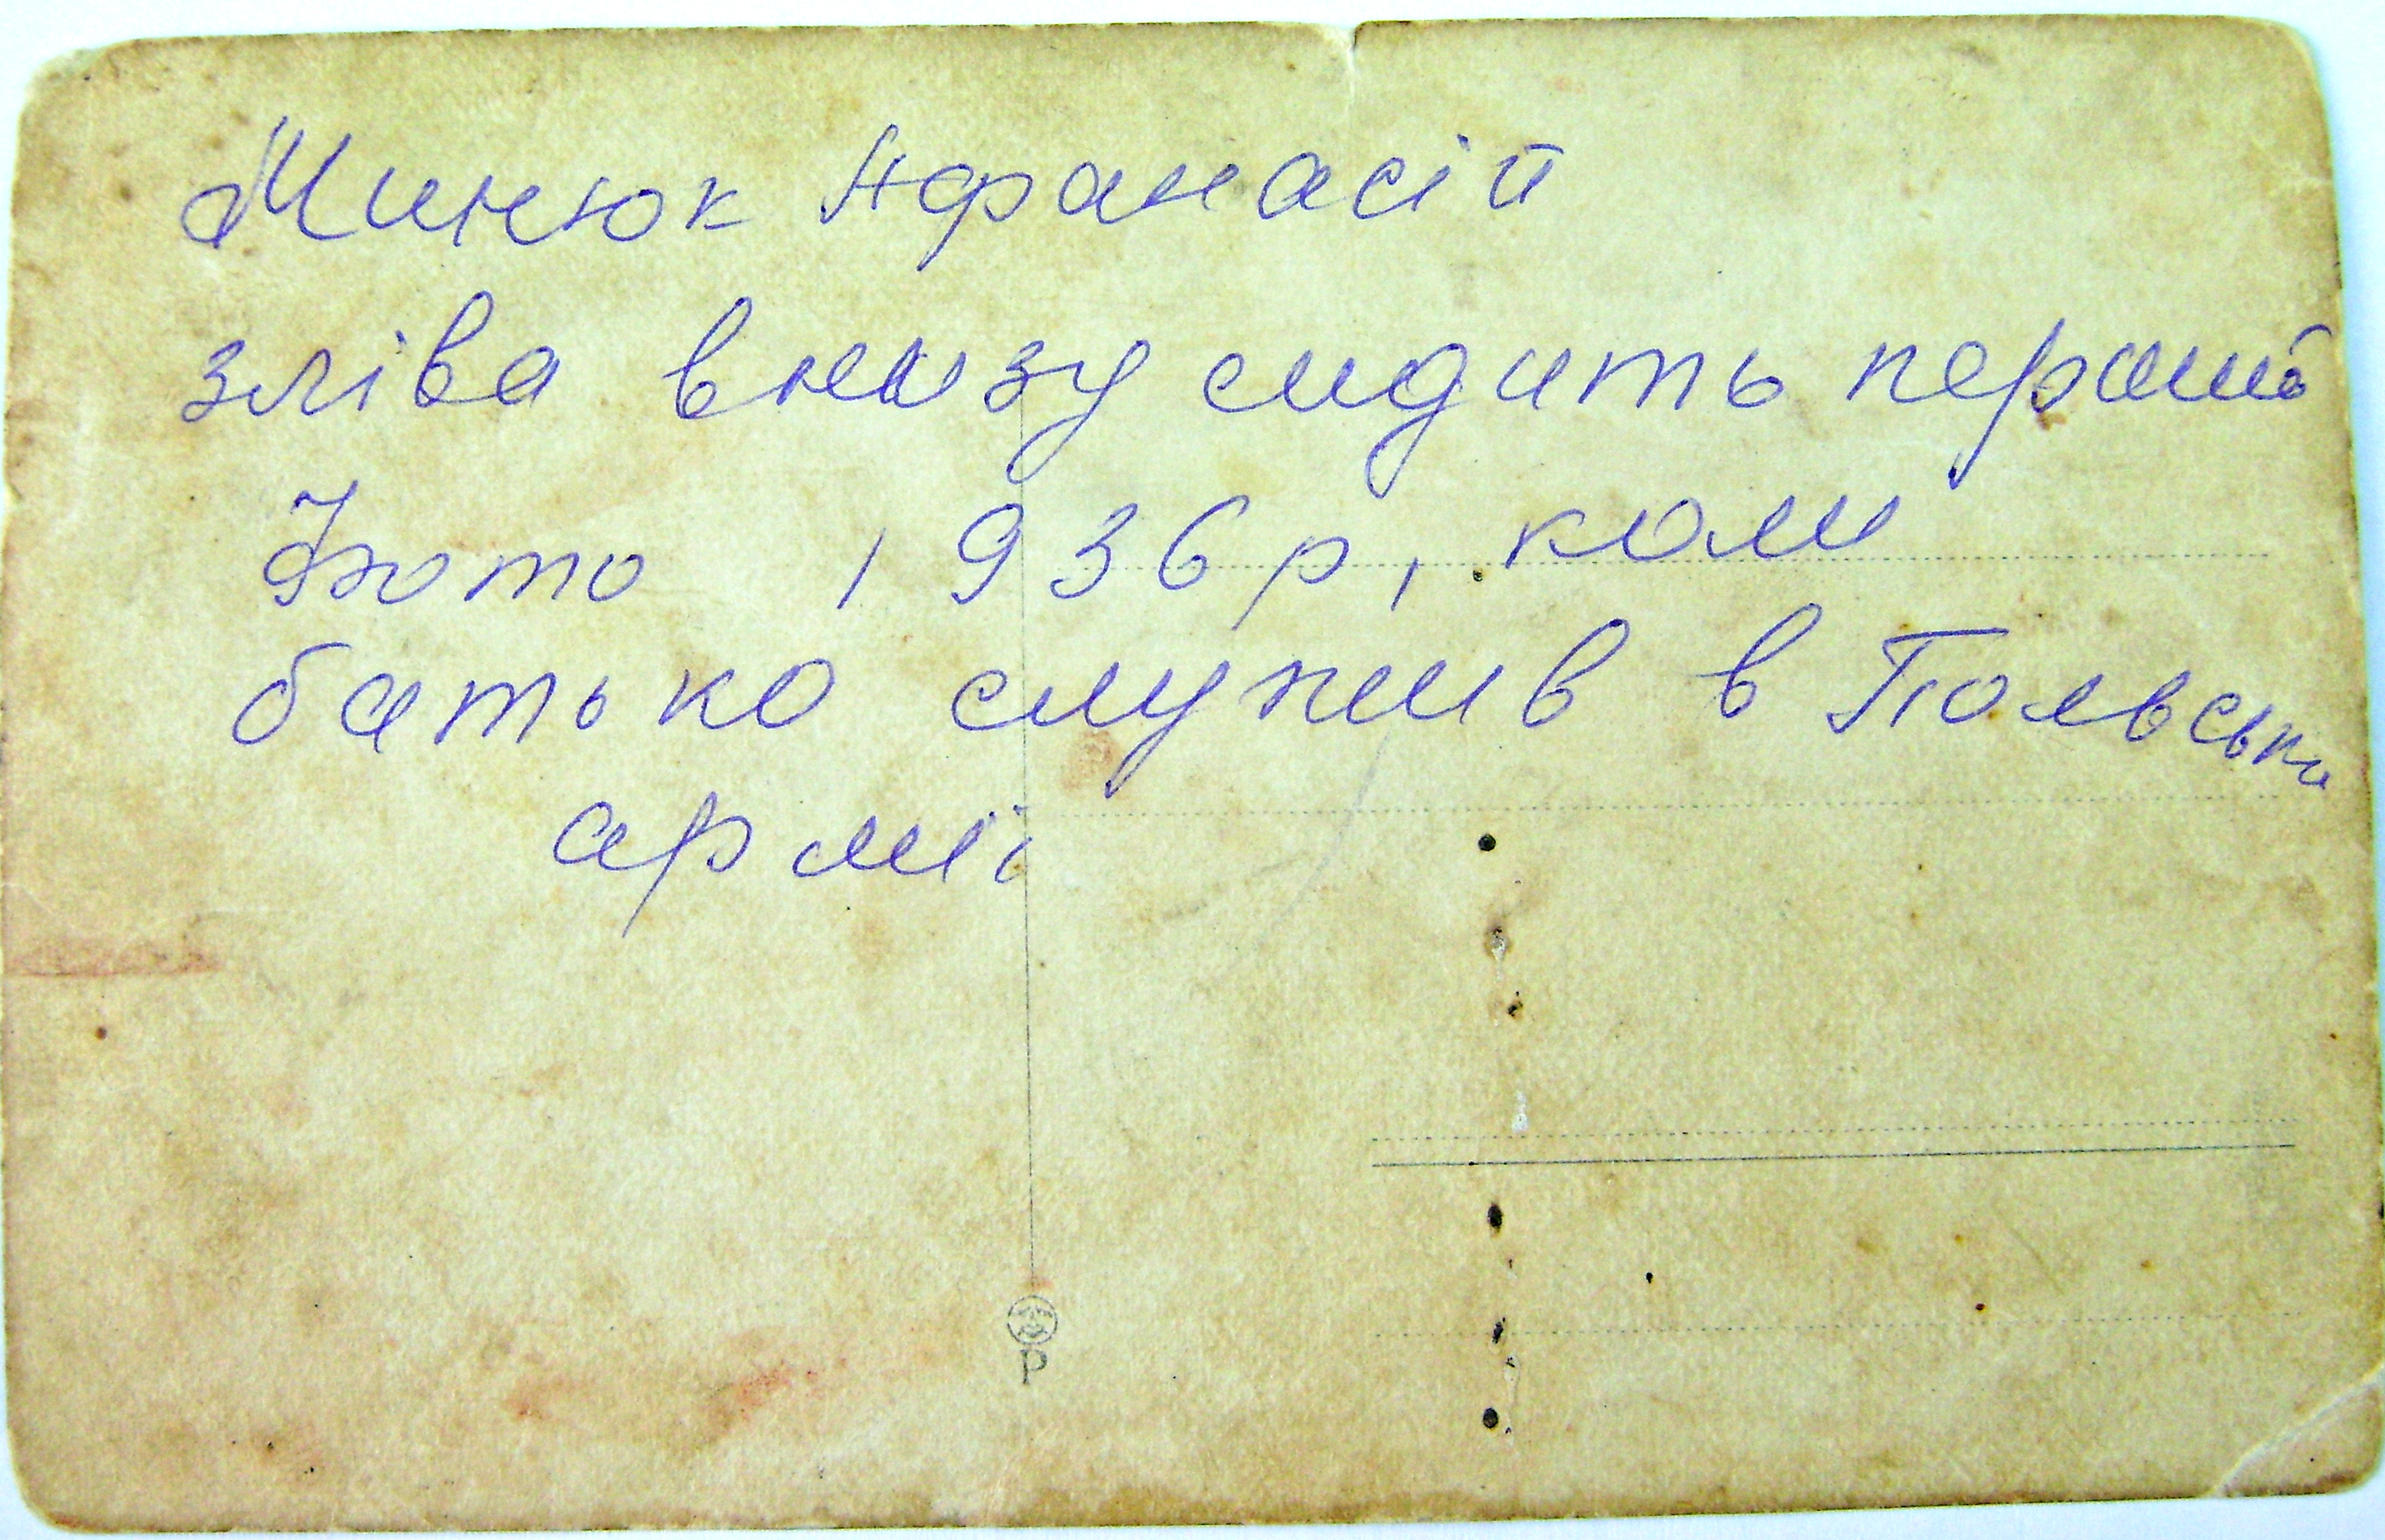 Минюк Афанасій
зліва внизу сидить перший
Фото 1936 р, коли
батько служив в Польські
армії
P